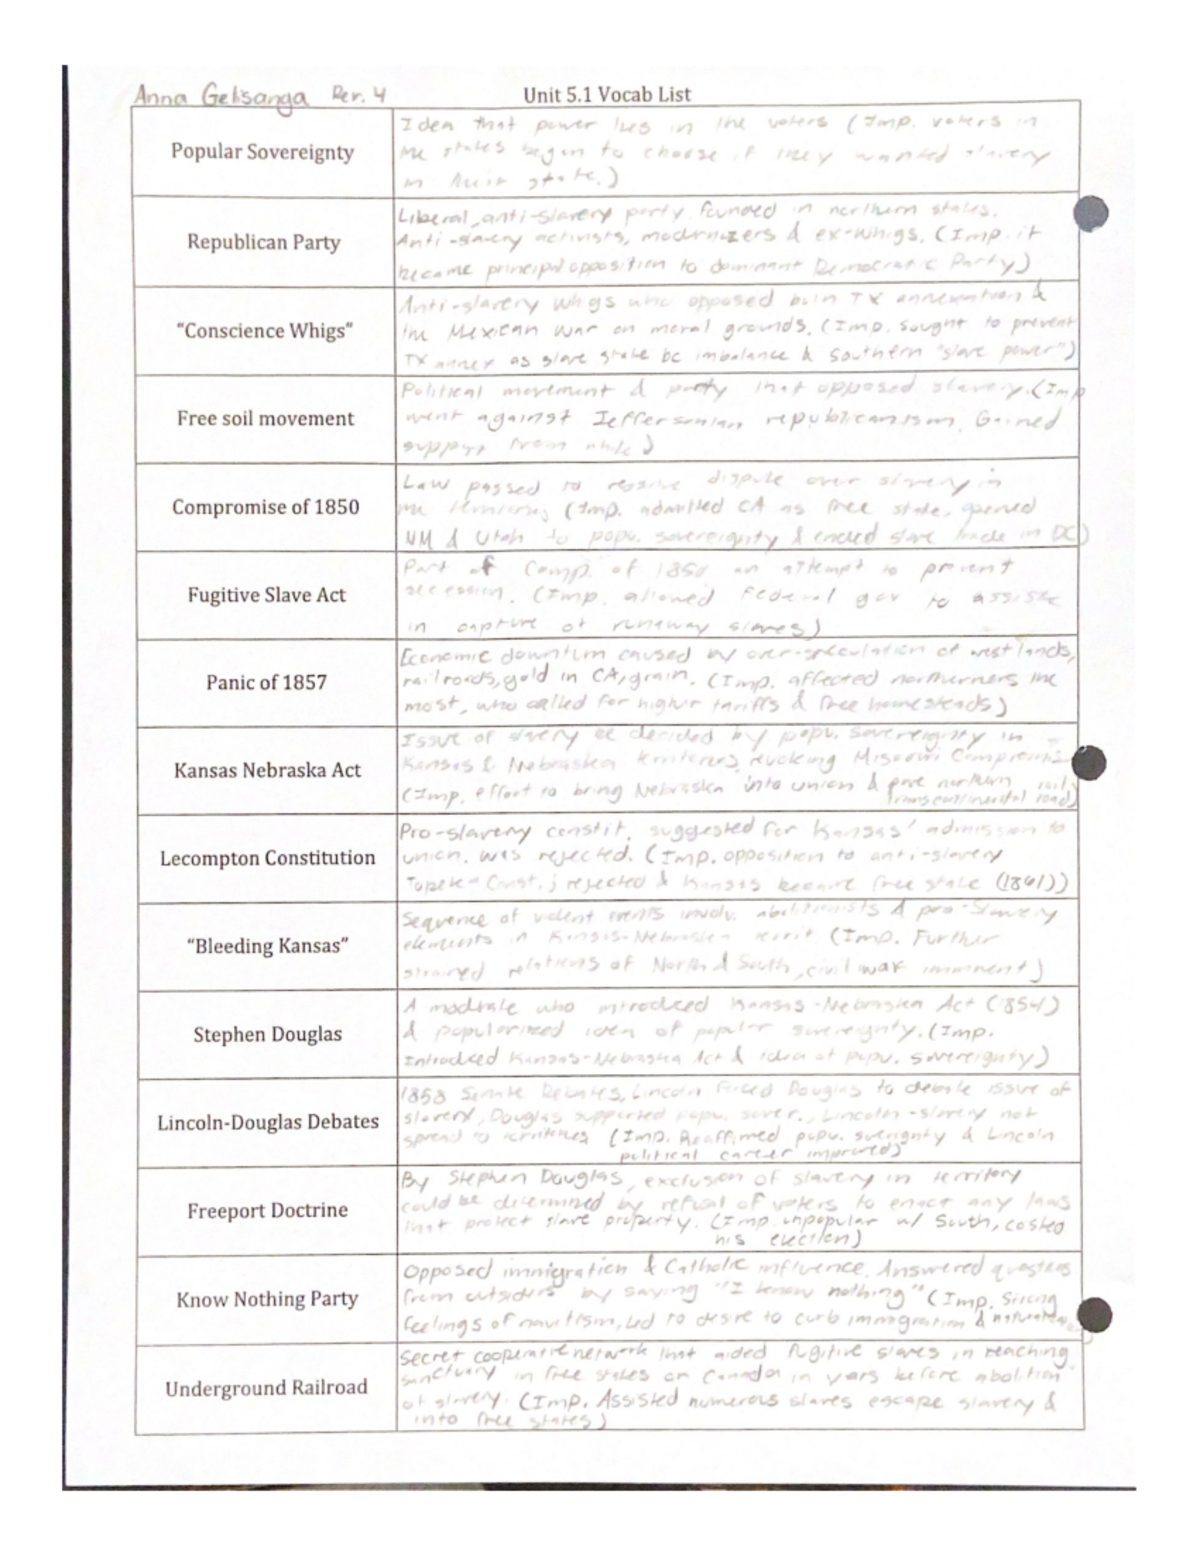 Anna Gelisanga Per. 4
Unit 5.1 Vocab List
Popular Sovereignty
Idea that power lies in the voters (Imp. voters in
the states begin to choose if they wanted slavery
in their state.)
Republican Party
Liberal, anti-slavery party founded in northern states.
Anti-slavery activists, modernizers & ex-whigs. (Imp. it
became principal opposition to dominant Democratic Party)
"Conscience Whigs"
Anti-slavery Whigs who opposed both TX annexation &
the Mexican War on moral grounds. (Imp. sought to prevent
TX annex as slave state bc imbalance & Southern "slave power")
Free soil movement
Political movement & party that opposed slavery. (Imp
went against Jeffersonian republicanism. Gained
support from
Compromise of 1850
Law passed to resolve dispute over slavery in
the territories (Imp. admitted CA as free state, opened
NM & Utah to popu. sovereignty & ended slave trade in DC)
Fugitive Slave Act
Part of Comp. of 1850 an attempt to prevent
secession. (Imp. allowed federal gov to assist
in capture of runaway slaves)
Panic of 1857
Economic downturn caused by over-speculation of west lands,
railroads, gold in CA, grain. (Imp. affected northerners the
most, who called for higher tariffs & free homesteads)
Kansas Nebraska Act
Issue of slavery be decided by popu. sovereignty in
Kansas & Nebraska territories, revoking Missouri Compromise
(Imp. effort to bring Nebraska into union & pave northern
transcontinental road)
Lecompton Constitution
Pro-slavery constit. suggested for Kansas' admission to
union. was rejected. (Imp. opposition to anti-slavery
Topeka Const.; rejected & Kansas became free state (1861))
"Bleeding Kansas"
Sequence of violent events involv. abolitionists & pro-slavery
elements in Kansas-Nebraska territ (Imp. Further
strained relations of North & South, civil war imminent)
Stephen Douglas
A modrate who introduced Kansas-Nebraska Act (1854)
& popularized idea of popular sovereignty. (Imp.
Introduced Kansas-Nebraska Act & idea of popu. sovereignty)
Lincoln-Douglas Debates
1858 Senate Debates, Lincoln forced Douglas to debate issue of
slavery, Douglas supported popu. sover., Lincoln -slavery not
spread to territories (Imp. Reaffirmed popu. sverignty & Lincoln
political career improved)
Freeport Doctrine
By Stephen Douglas, exclusion of slavery in territory
could be determined by refusal of voters to enact any laws
that protect slave property. (Imp. unpopular w/ South, costed
his election)
Know Nothing Party
Opposed immigration & Catholic influence. Answered questions
from outsiders by saying "I know nothing" (Imp. Strong
feelings of navitism, led to desire to curb immigration &
Underground Railroad
Secret cooperative network that aided fugitive slaves in reaching
sanctuary in free states or Canada in years before abolition
of slavery. (Imp. Assisted numerous slaves escape slavery &
into free states)